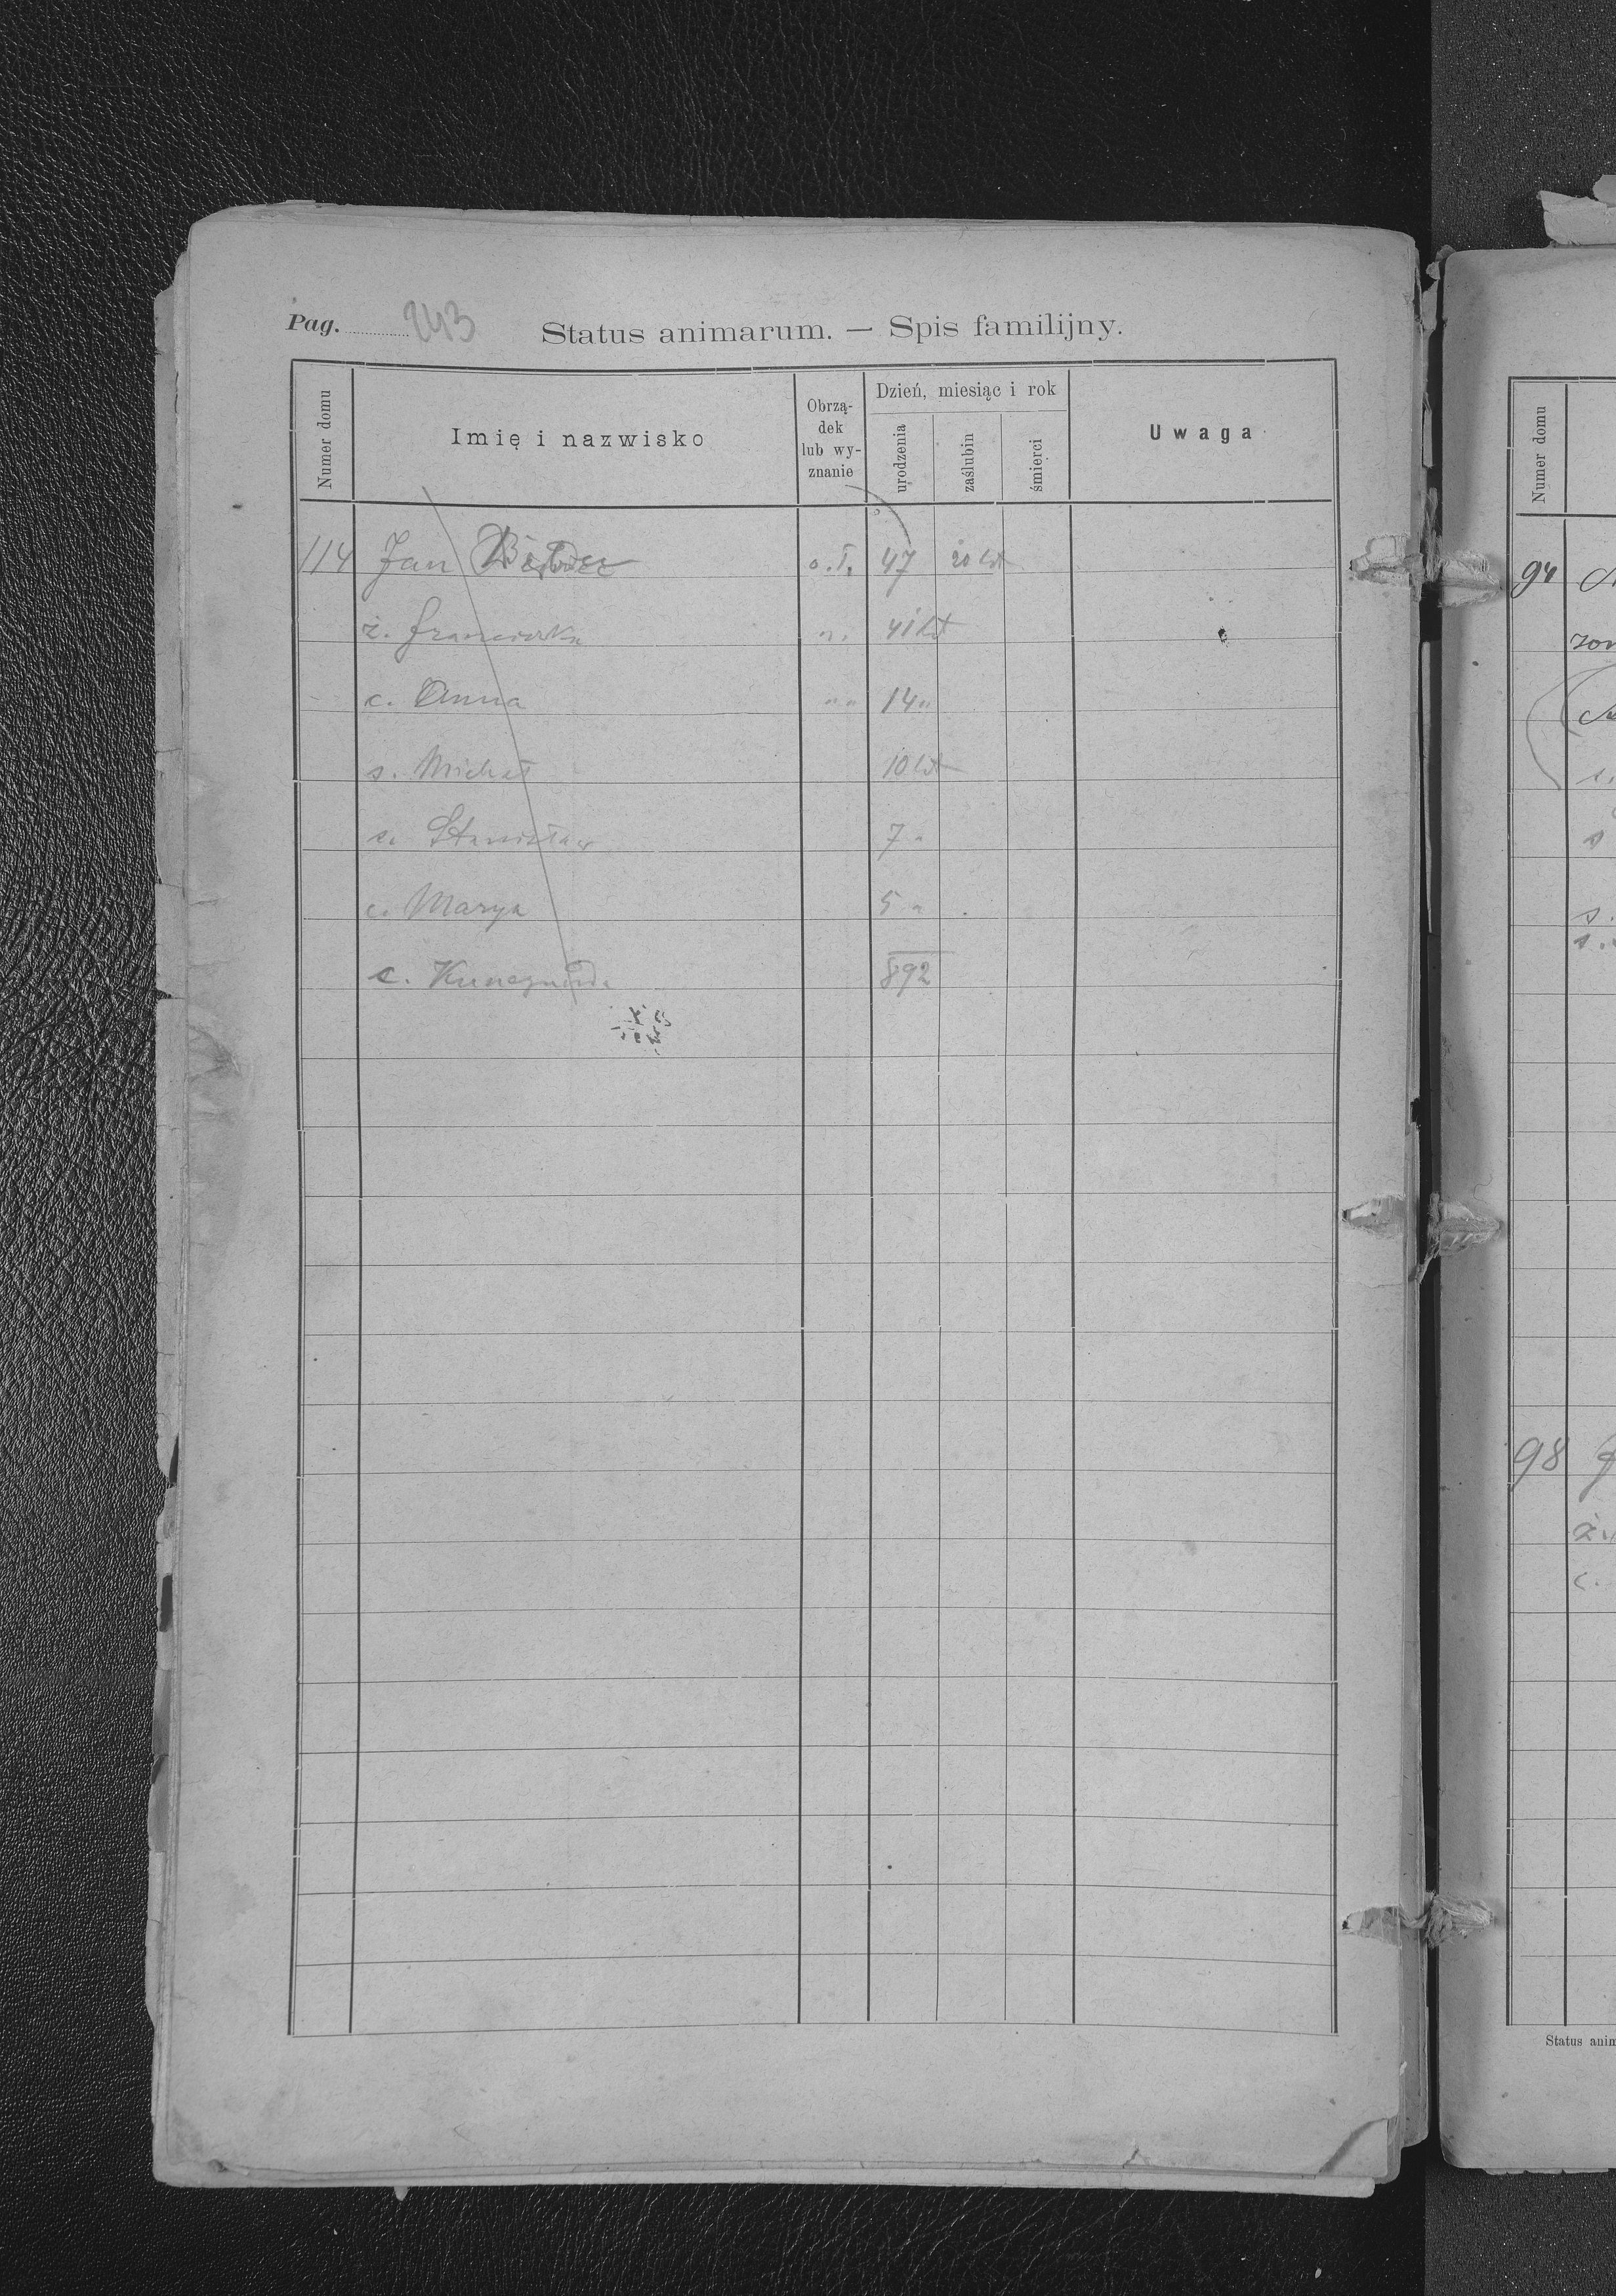 Pag. 243 Status animarum. — Spis familijny.
Numer domu
Imię i nazwisko
Obrzą-
dek
lub wy-
znanie
Dzień, miesiąc i rok
urodzenia
zaślubin
śmierci
Uwaga
114 Jan o. ł. 47 20 lat
ż. Franciszka 41 lat
c. Anna „ „ 14 „
s. Michał 10 lat
s. Stanisław 7 „
c. Marya 5 „
c. Kunegunda 892
Numer domu
94
98
ż.
c.
Status anim